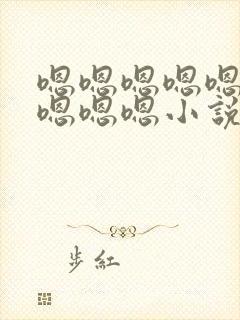 嗯嗯嗯嗯嗯
嗯嗯嗯小说
步红